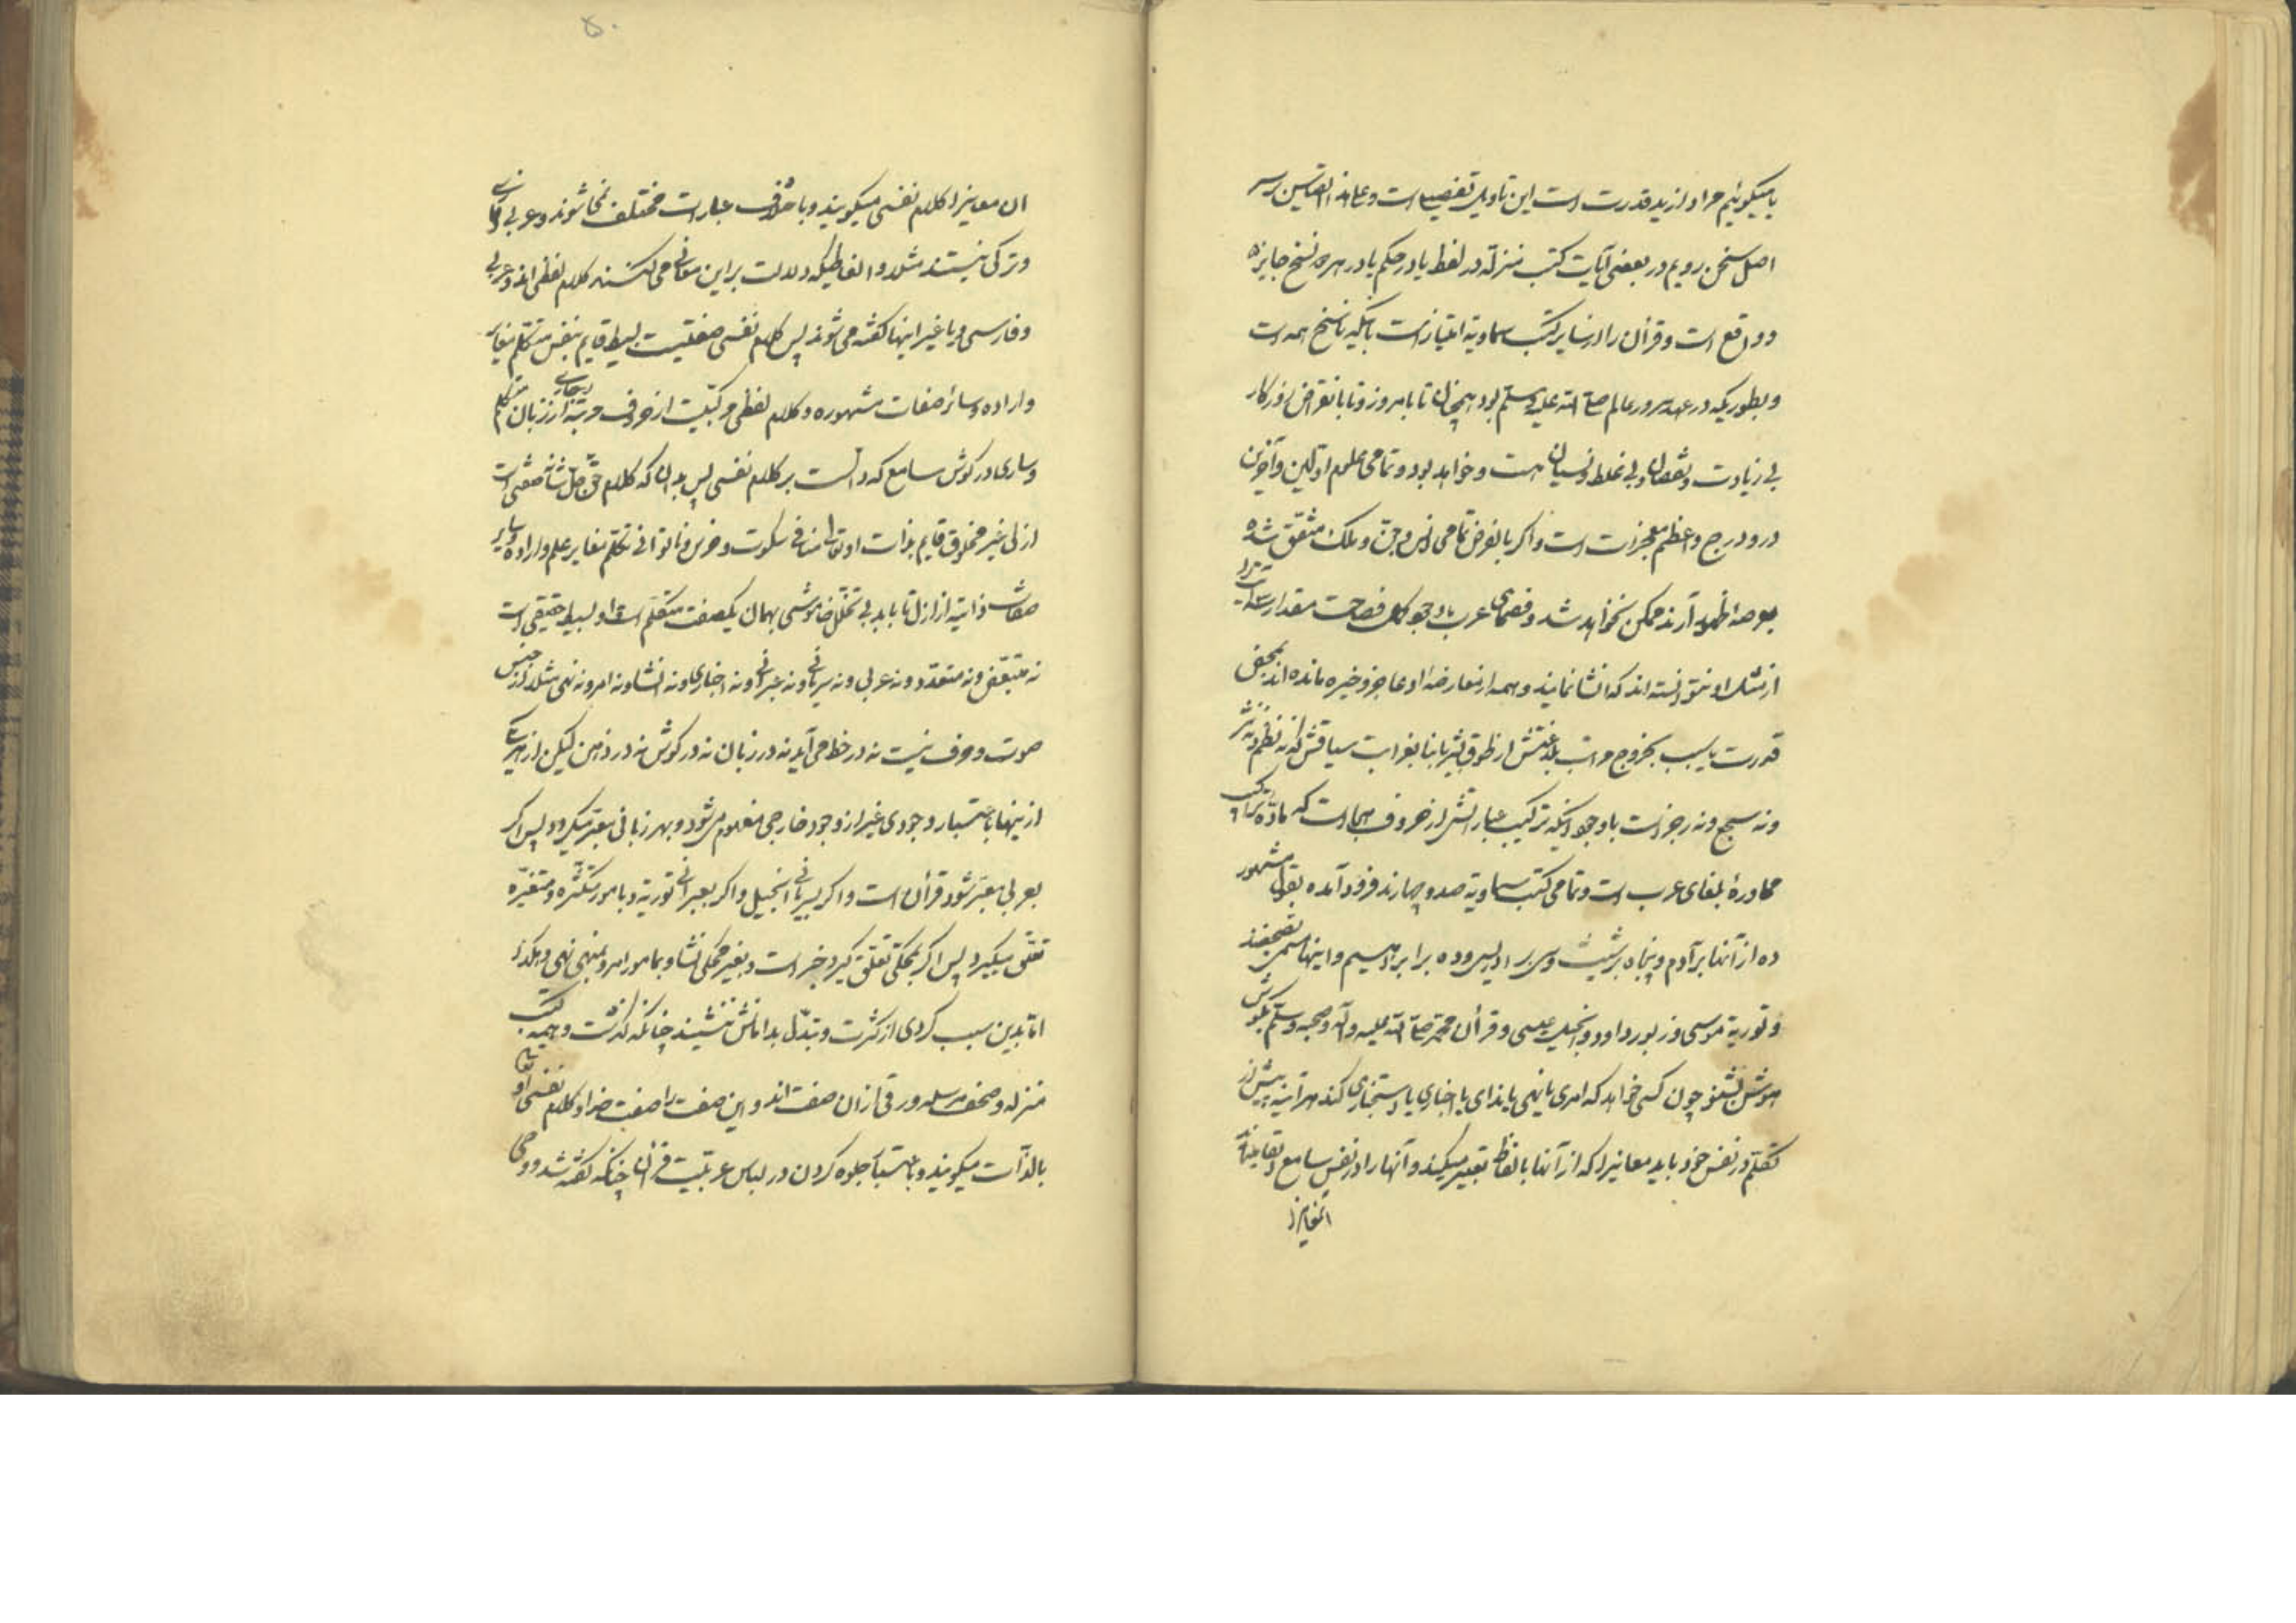 یا میگوئیم مراد از ید قدرت است این تاویل تفصیلی است و علی هذا القیاس بر سر
اصل سخن رویم در بعضی آیات کتب منزله در لفظ یا در حکم یا در هر دو نسخ جایز
و واقع است و قرآن را از سایر کتب سماویه امتیاز است بآنکه ناسخ همه است
و بطوریکه در عهد سرور عالم صلی الله علیه وسلم بود همچنان تا بامروز و تا بانقراض روزکار
بی زیادت و نقصان و بی غلط و نسیان هست و خواهد بود و تمامی علوم اولین و آخرین
درو درج و اعظم معجزات است و اکر بالفرض تمامی انس و جن و ملک متفق شده
بعرصهٔ ظهور آرند ممکن نخواهد شد و فصحای عرب با وجود کمال فصاحت مقدار
از مثل او نتوانسته اند که انشا نمایند و همه از معارضهٔ او عاجز و خیره مانده اند بمحض
قدرت یا بسبب خروج مراتب بلاغتش از طوق بشر یا بنا بغرابت سیاقش که نه نظم و نه نثر
و نه سجع و نه رجز است با وجود آنکه ترکیب عباراتش از حروف هجا است که مادّه
محاورهٔ بلغای عرب است و تمامی کتب سماویه صد و چهارند فرود آمده بقول مشهور
ده از آنها بر آدم و پنجاه بر شیث و سی بر ادریس و ده بر ابراهیم و اینها
و توریة موسی و زبور داود و انجیل عیسی و قرآن محمد صلی الله علیه وآله وصحبه وسلم بکوش
هوش بشنو چون کسی خواهد که امری یا نهی یا ندای یا اخباری یا استخباری کند هر آینه پیش از
تکلم در نفس خود یابد معانیرا که از آنها بالفاظ تعبیر میکند و آنها را در نفس سامع
ان معانیرا کلام نفسی میکویند و باختلاف عبارات مختلف نمی شوند و عربی و فارسی
و ترکی نیستند مثلا و الفاظیکه دلالت بر این معانی می کنند کلام لفظی اند و عربی
و فارسی و یا غیر اینها کفته می شوند پس کلام نفسی صفتیست بسیط قایم بنفس متکلم مغایر
و اراده و سائر صفات مشهوره و کلام لفظی مرکبیست از حروف مرتبه جاری از زبان متکلم
و ساری در کوش سامع که دالست بر کلام نفسی پس بدان که کلام حق جل شأنه صفتی است
ازلی غیر مخلوق قایم بذات او تعالی منافی سکوت و خرس و ناتوانی تکلم مغایر علم و اراده و سایر
صفات ذاتیه از ازل تا بابد بی تخلل خاموشی بهمان یکصفت متکلم است و او بسیط حقیقی است
نه متبعّض و نه متعدّد و نه عربی و نه سریانی و نه عبرانی و نه اخباری و نه انشا و نه امر و نه نهی مثلا از جنس
صوت و حرف نیست نه در خط می آید نه در زبان نه در کوش نه در ذهن لیکن از هر یکی
از ینها باعتبار وجودی غیر از وجود خارجی مفهوم میشود و بهر زبانی معبر میکردد پس اکر
بعربی معبر شود قرآن است و اکر بسریانی انجیل و اکر بعبرانی توریة و بامور متکثره و متغیّره
تعلق میکیرد پس اکر بمحکی تعلق کیرد خبر است و بغیر محکی انشا و بمامور امر و بمنهی نهی و هکذا
اما بدین سبب کردی از کثرت و تبدّل بدامانش ننشیند چنانکه کذشت و همه کتب
منزله و صحف مرسله ورقی ازان صفت اند و این صفت را صفت خدا و کلام نفسی او تعالی
بالذات میکویند و باعتبار جلوه کردن در لباس عربیت قرآن چنانکه کفته شد و